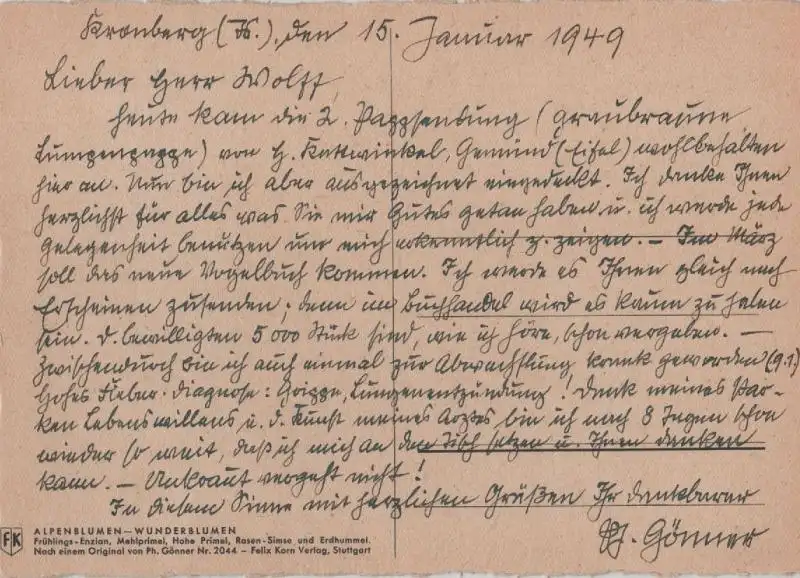 Kronberg (Ts.), den 15. Januar 1949
Lieber Herr Wolff,
heute kam die 2. Pappsendung (graubraune
Lumpenpappe) von H. Kattwinkel, Gemünd (Eifel) wohlbehalten
hier an. Nun bin ich aber ausgezeichnet eingedeckt. Ich danke Ihnen
herzlichst für alles was Sie mir Gutes getan haben u. ich werde jede
Gelegenheit benutzen um mich erkenntlich z. zeigen. — Im März
soll das neue Vogelbuch kommen. Ich werde es Ihnen gleich nach
Erscheinen zusenden; denn im Buchhandel wird es kaum zu haben
sein. D. bewilligten 5000 Stück sind, wie ich höre, schon vergeben. —
Zwischendurch bin ich auch einmal zur Abwechslung krank geworden (9.1.)
Hohes Fieber. Diagnose: Grippe, Lungenentzündung! Dank meines star-
ken Lebenswillens u. d. Kunst meines Arztes bin ich nach 8 Tagen schon
wieder so weit, daß ich mich an den Tisch setzen u. Ihnen danken
kann. — Unkraut vergeht nicht!
In diesem Sinne mit herzlichen Grüßen Ihr dankbarer
Ph. Gönner
FK
ALPENBLUMEN—WUNDERBLUMEN
Frühlings-Enzian, Mehlprimel, Hohe Primel, Rasen-Simse und Erdhummel.
Nach einem Original von Ph. Gönner Nr. 2044 – Felix Korn Verlag, Stuttgart